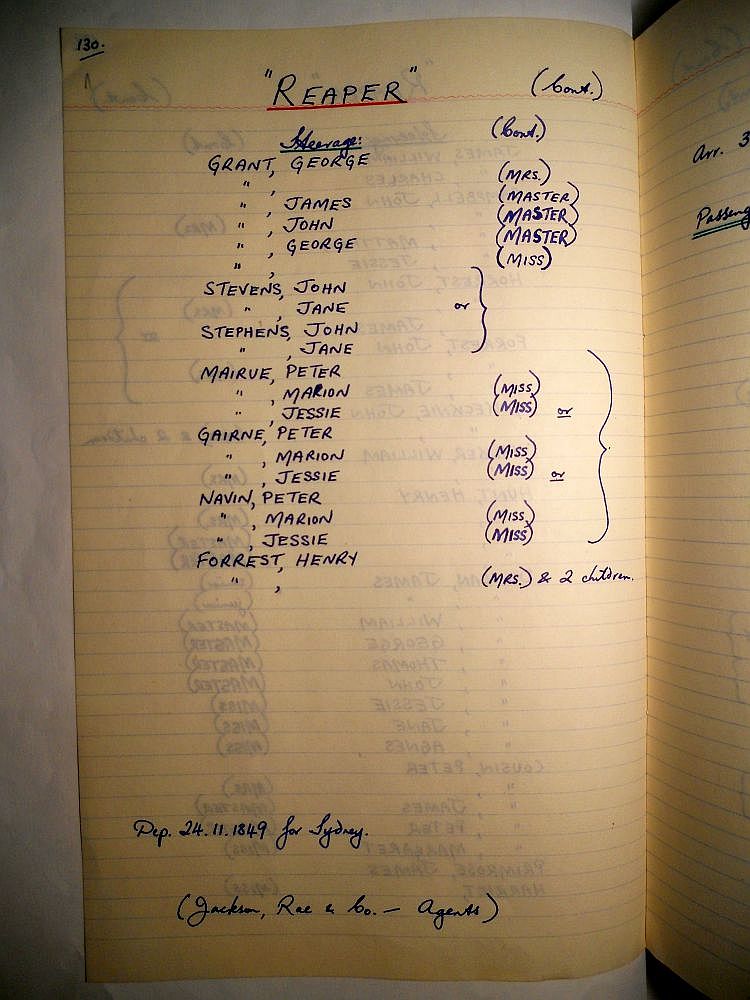 130.
"REAPER" (Cont.)
Steerage: (Cont.)
GRANT, GEORGE
" , (MRS.)
" , JAMES (MASTER)
" , JOHN (MASTER)
" , GEORGE (MASTER)
" , (MISS)
STEVENS, JOHN
" , JANE or
STEPHENS, JOHN
" , JANE
MAIRUE, PETER
" , MARION (MISS)
" , JESSIE (MISS) or
GAIRNE, PETER
" , MARION (MISS)
" , JESSIE (MISS) or
NAVIN, PETER
" , MARION (MISS)
" , JESSIE (MISS)
FORREST, HENRY
" , (MRS.) & 2 children.
Dep. 24.11.1849 for Sydney.
(Jackson, Rae & Co. — Agents)
Arr. 3
Passeng